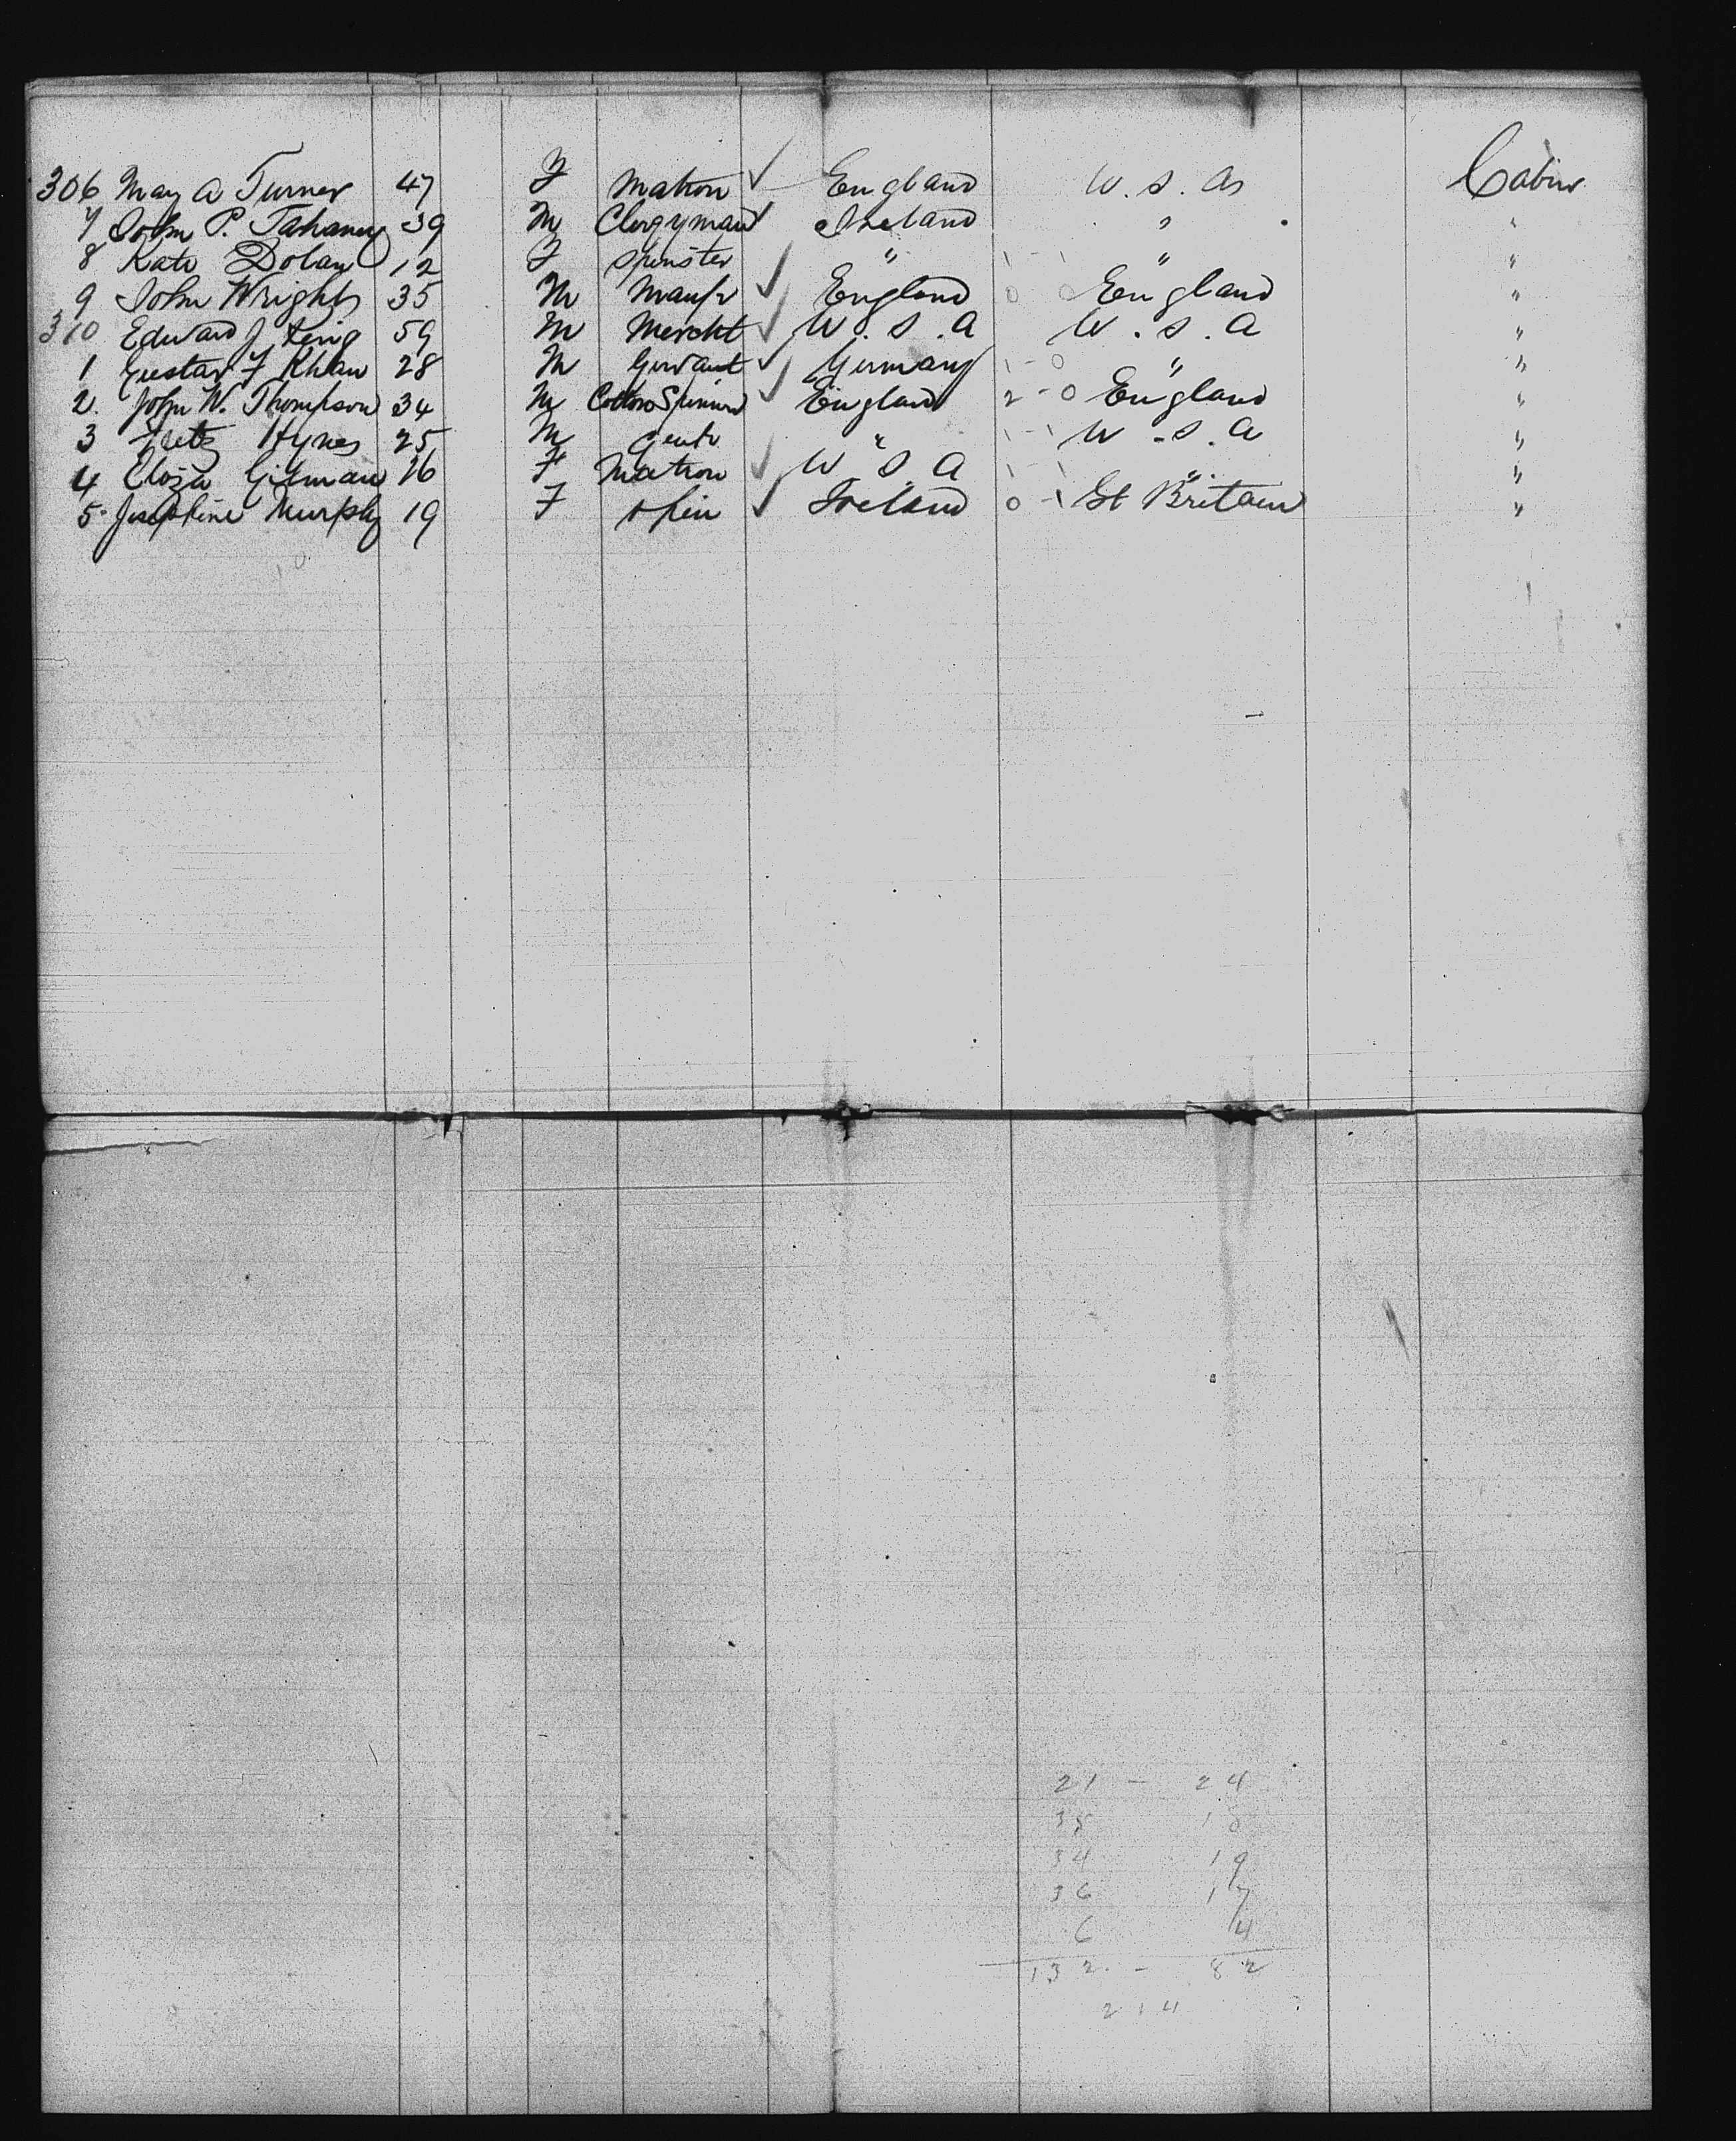 306 Mary A Turner 47 F Matron ✓ England U.S.A Cabin
7 John P. Tahaney 39 M Clergyman ✓ Ireland " "
8 Kate Dolan 12 F Spinster ✓ " 1 - 1 " "
9 John Wright 35 M Manfr ✓ England 0 0 England "
310 Edward J King 59 M Mercht ✓ U.S.A U.S.A "
1 Gustav F Khan 28 M ✓ Germany 1 - 0 " "
2 John W. Thompson 34 M Cotton Spinner ✓ England 2 - 0 England "
3 Hynes 25 M Gent " 1 - 1 U.S.A "
4 Eliza Gilman 26 F Matron ✓ U.S.A 1 - 1 " "
5 Josephine Murphy 19 F Spin ✓ Ireland 0 - 1 Gt Britain "
21 - 24
35 18
34 19
36 17
6 4
132 - 82
214